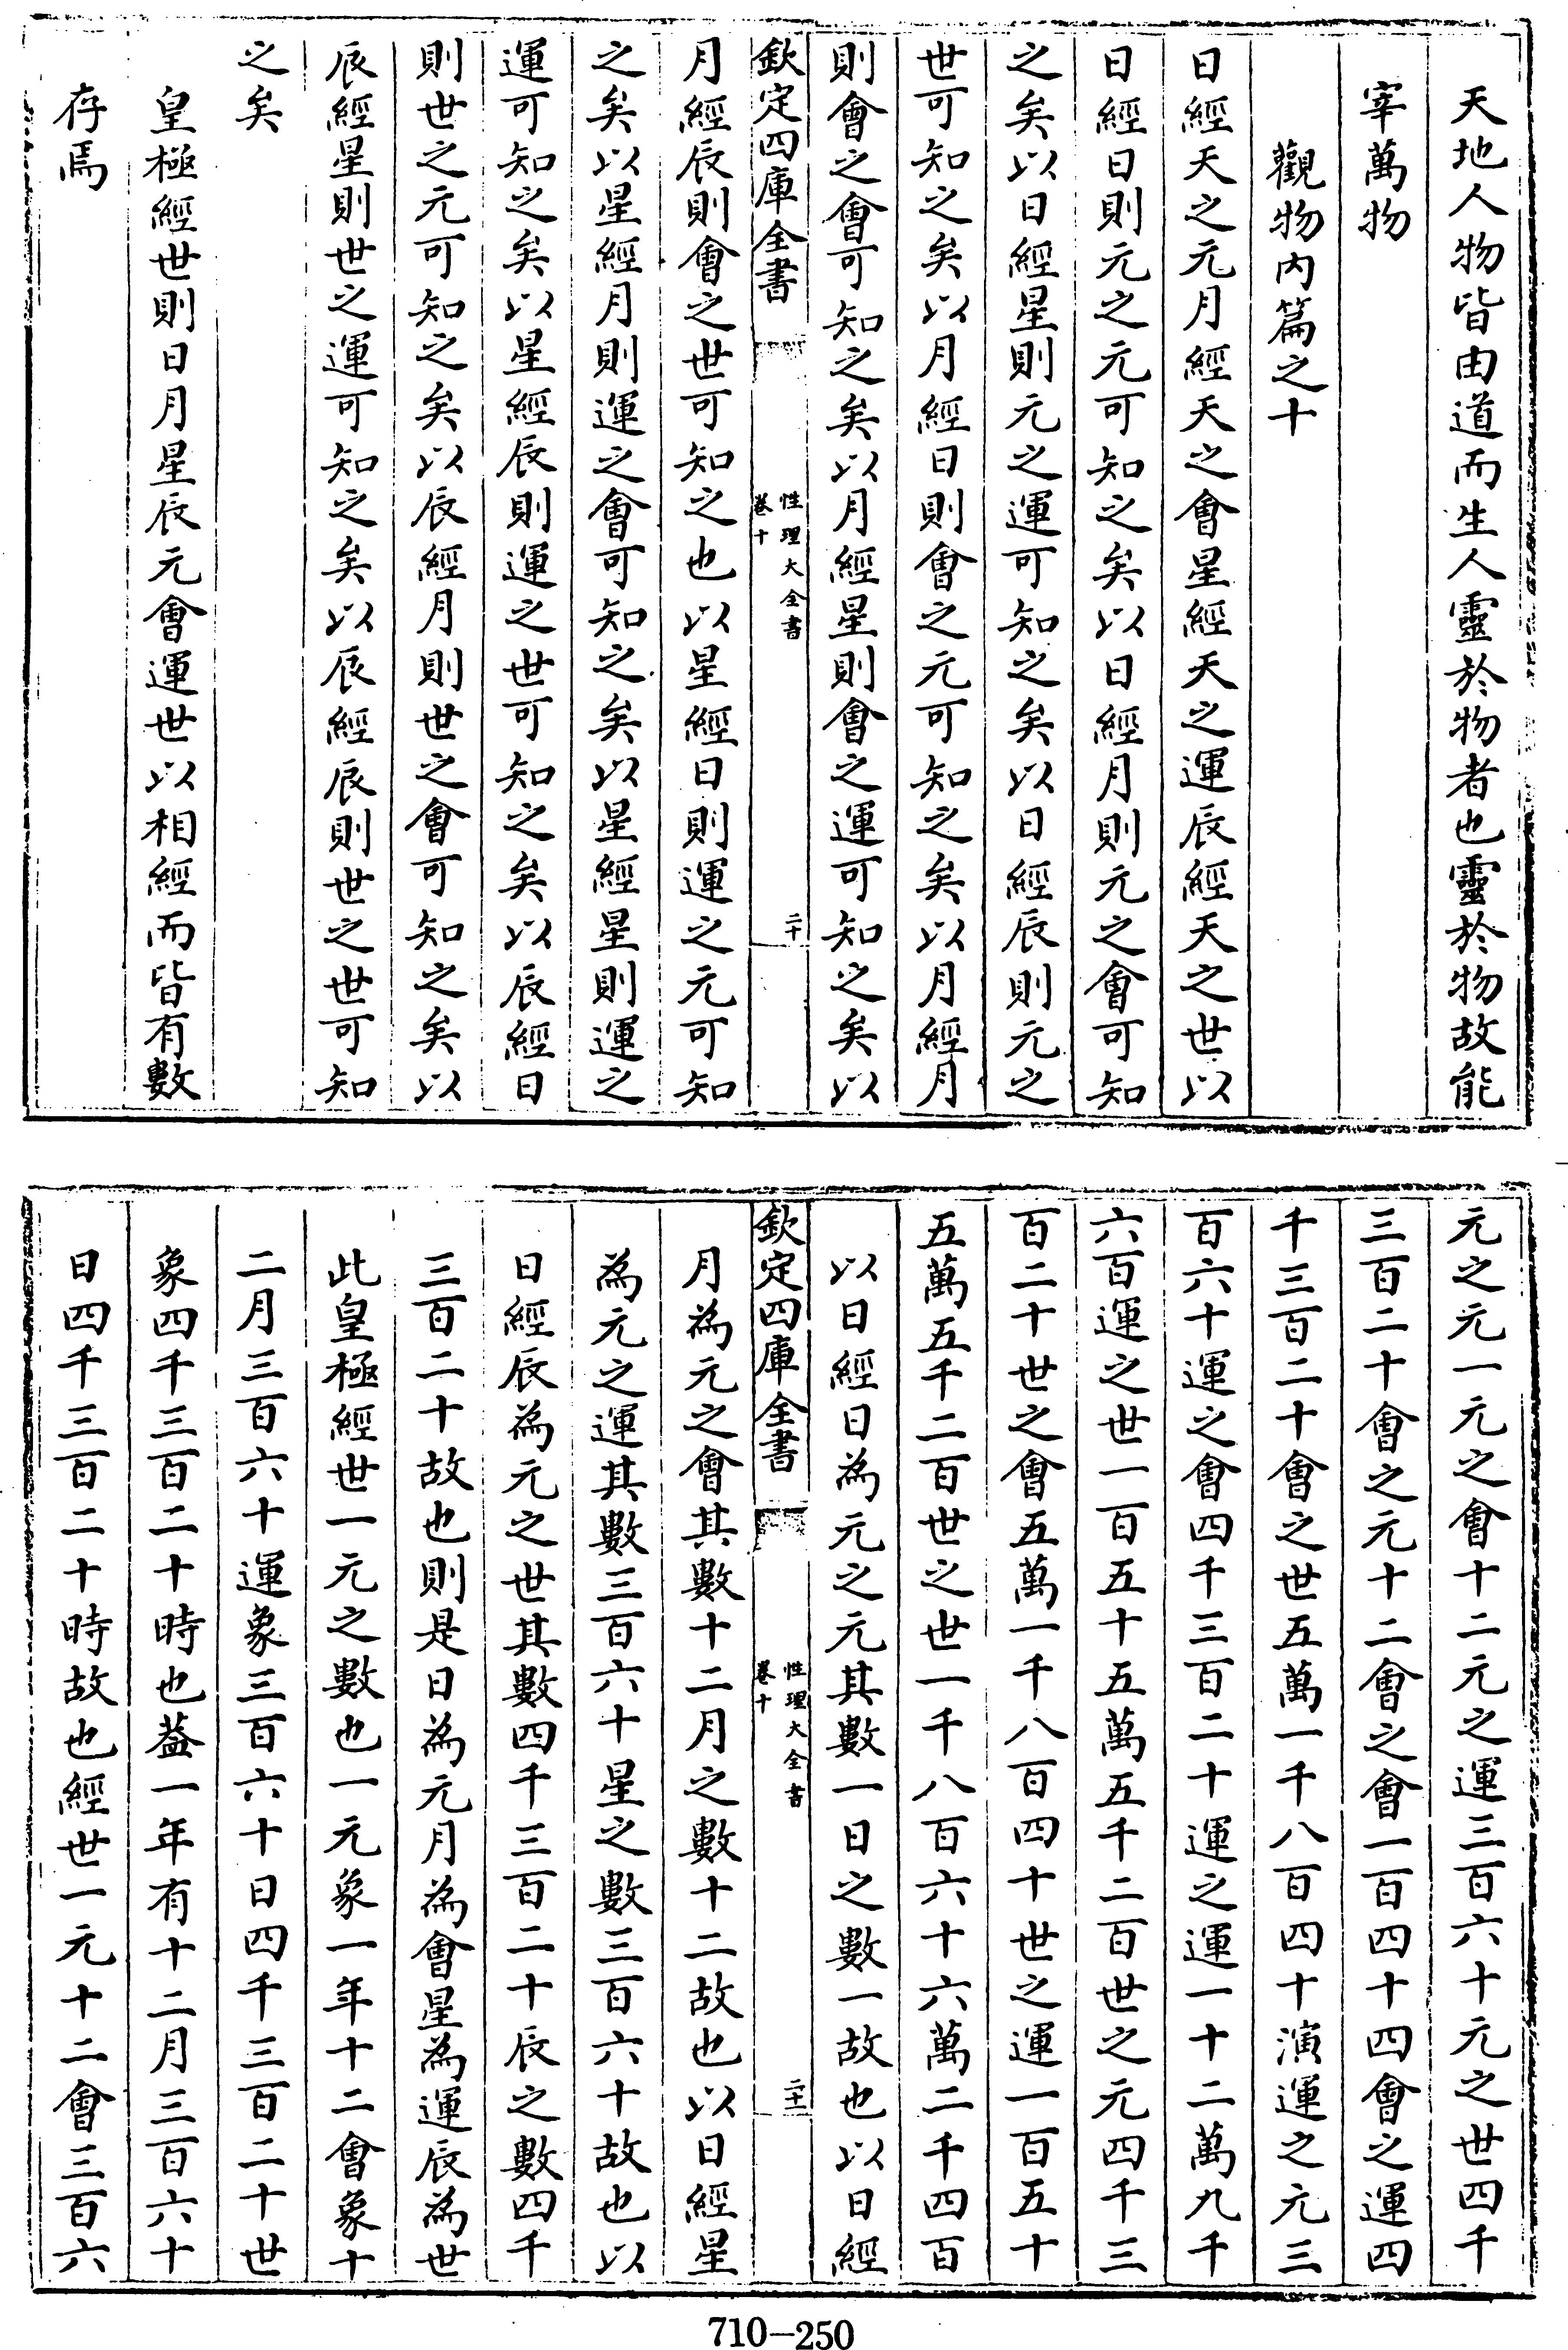 天地人物皆由道而生人靈於物者也靈於物故能
宰萬物
觀物内篇之十
日經天之元月經天之會星經天之運辰經天之世以
日經日則元之元可知之矣以日經月則元之會可知
之矣以日經星則元之運可知之矣以日經辰則元之
世可知之矣以月經日則會之元可知之矣以月經月
則會之會可知之矣以月經星則會之運可知之矣以
欽定四庫全書
性理大全書
卷十
二十
月經辰則會之世可知之也以星經日則運之元可知
之矣以星經月則運之會可知之矣以星經星則運之
運可知之矣以星經辰則運之世可知之矣以辰經日
則世之元可知之矣以辰經月則世之會可知之矣以
辰經星則世之運可知之矣以辰經辰則世之世可知
之矣
皇極經世則日月星辰元會運世以相經而皆有數
存焉
元之元一元之會十二元之運三百六十元之世四千
三百二十會之元十二會之會一百四十四會之運四
千三百二十會之世五萬一千八百四十演運之元三
百六十運之會四千三百二十運之運一十二萬九千
六百運之世一百五十五萬五千二百世之元四千三
百二十世之會五萬一千八百四十世之運一百五十
五萬五千二百世之世一千八百六十六萬二千四百
以日經日為元之元其數一日之數一故也以日經
欽定四庫全書
性理大全書
卷十
二十一
月為元之會其數十二月之數十二故也以日經星
為元之運其數三百六十星之數三百六十故也以
日經辰為元之世其數四千三百二十辰之數四千
三百二十故也則是日為元月為會星為運辰為世
此皇極經世一元之數也一元象一年十二會象十
二月三百六十運象三百六十日四千三百二十世
象四千三百二十時也葢一年有十二月三百六十
日四千三百二十時故也經世一元十二會三百六
710-250